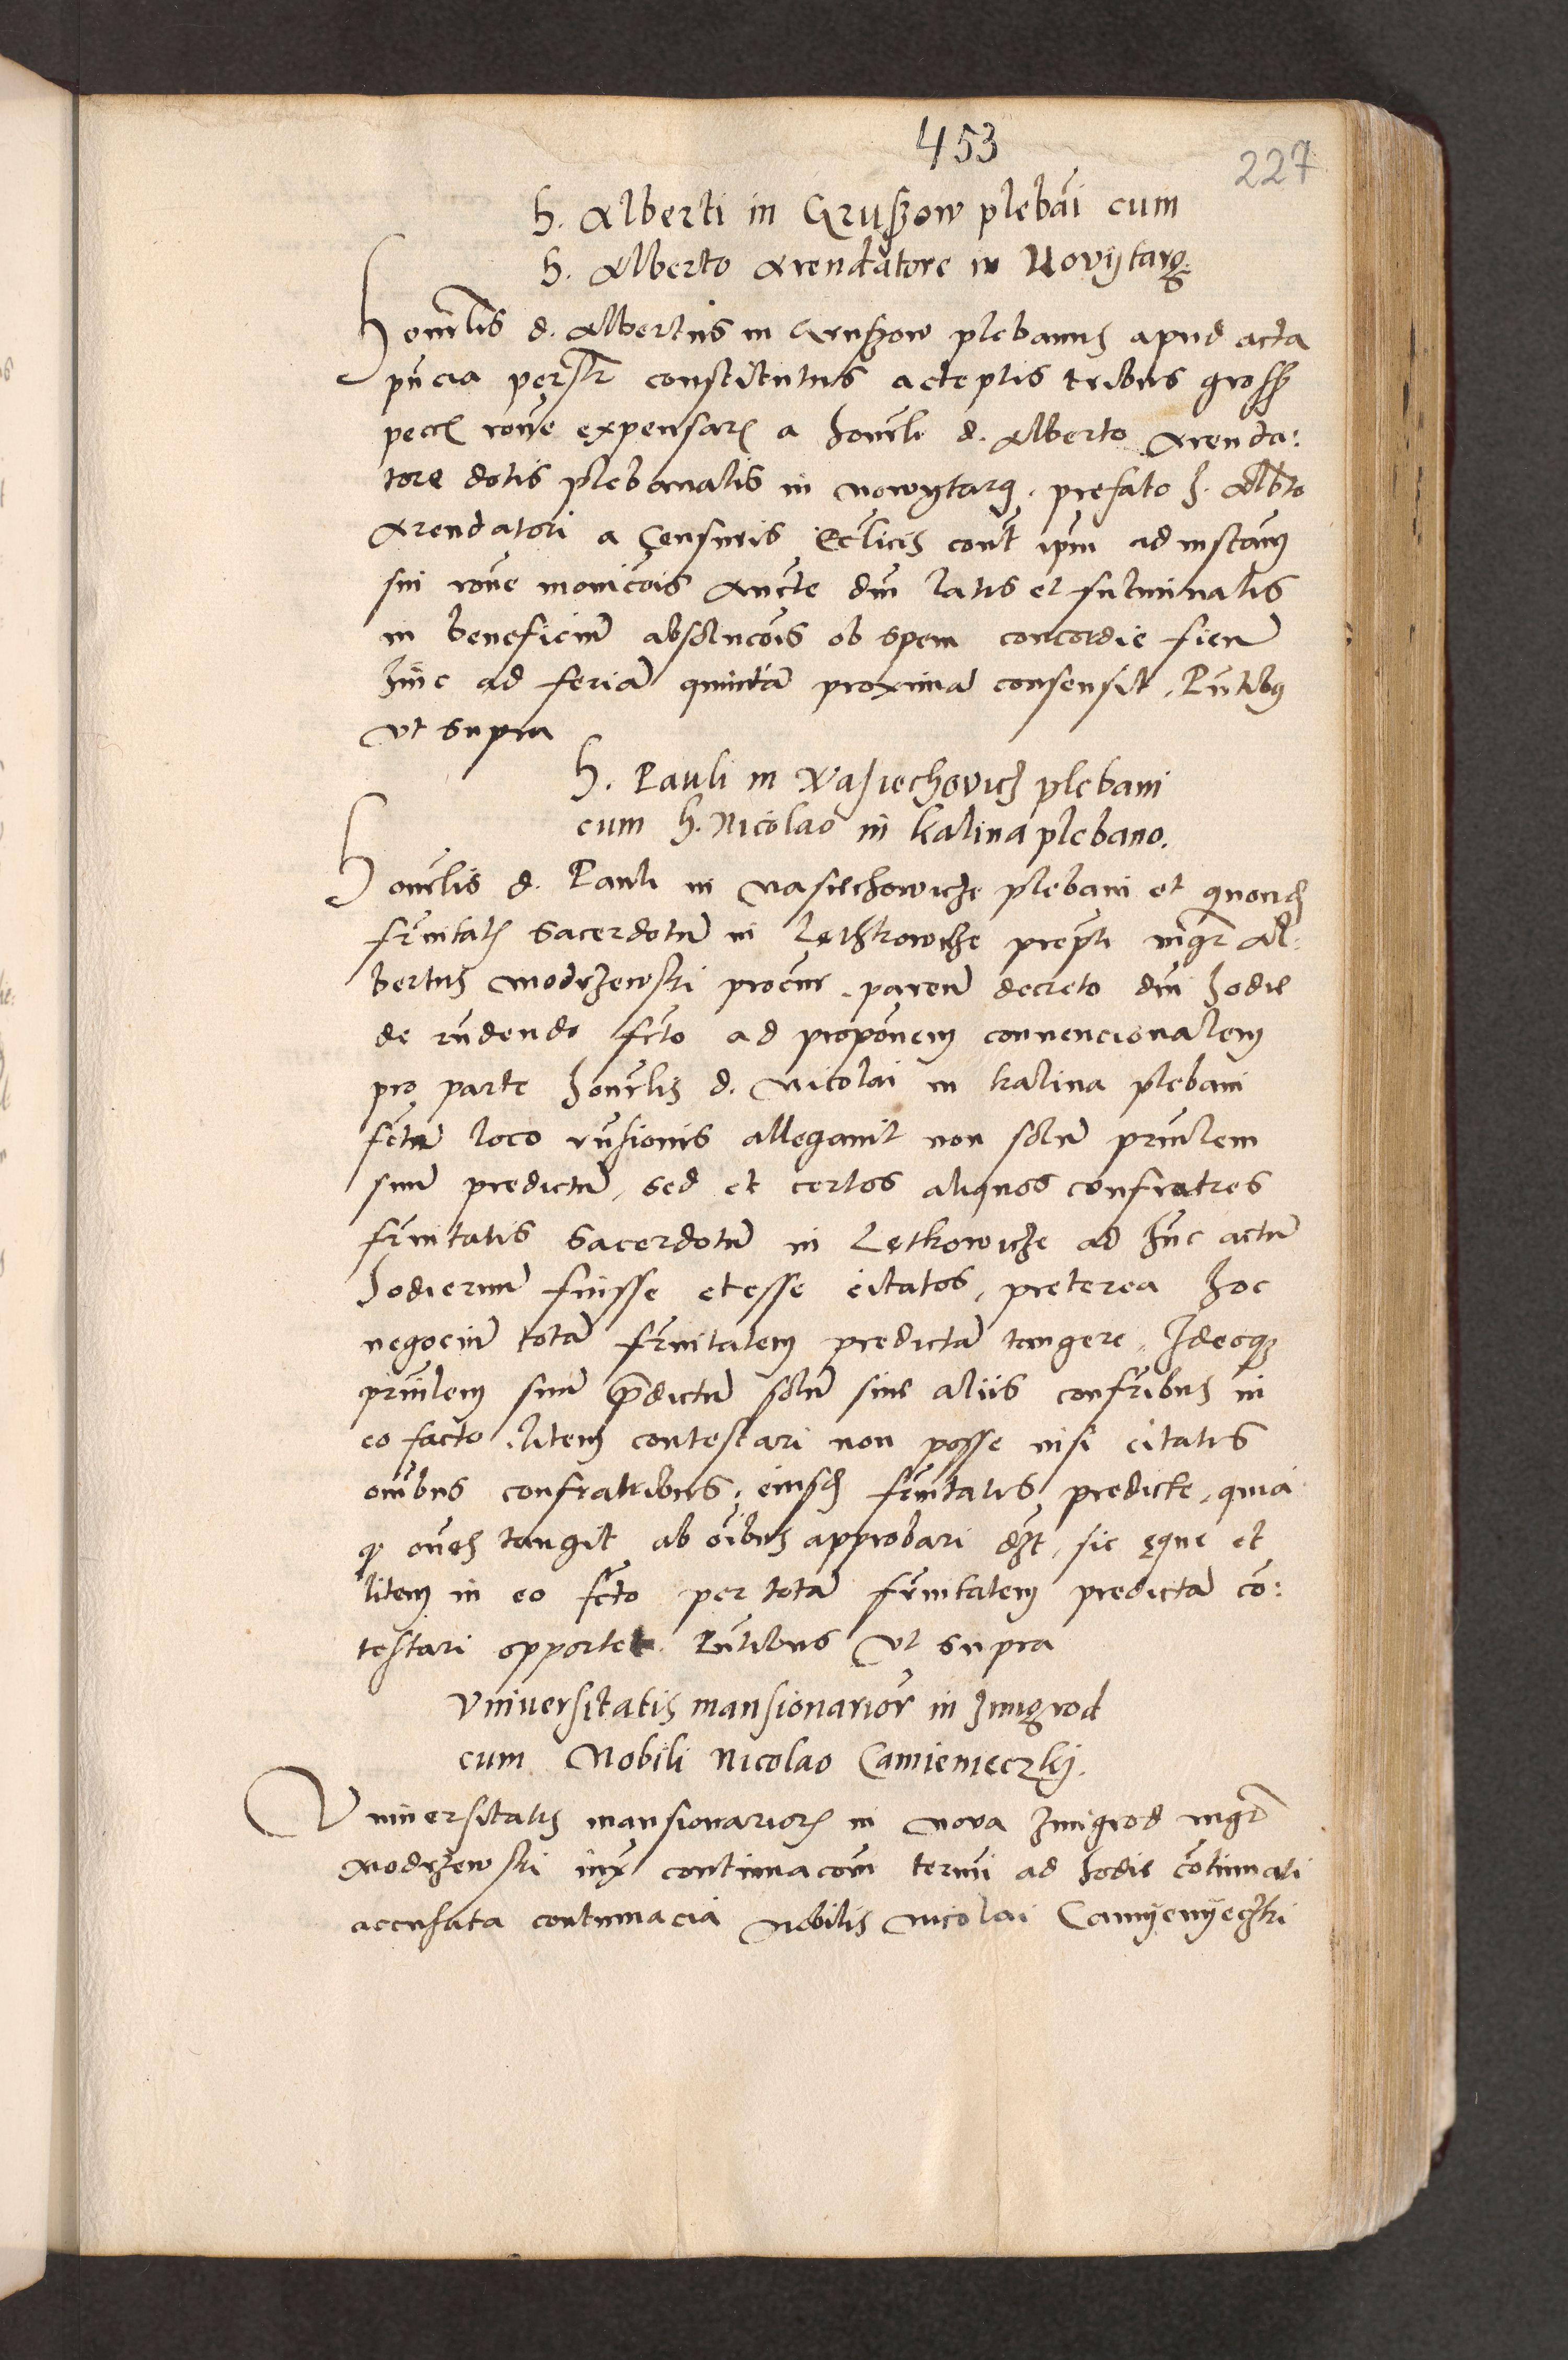 453
227
h. Alberti in Gruszow plebāi cum
h. Alberto Arendatore in Novijtarg.
Honorlis d. Albertus in Gruszow plebanus apud acta
pūcia persōlr constitutus acceptis tribus gross
pecc rōne expensar a honorli d. Alberto Arenda:
tore dotis plebanalis in Nowytarg, prefato h. Albto
Arendatori a Censuris Ecclicis cont ipm ad instām
sui rōne monicōis Aucte dni latis et fulminatis
in beneficiū absolucōis ob spem concordie fienā
hinc ad feriā quintā proximā consensit, Pntibus
Vt supra
h. Pauli in Wasiechovicz plebani
cum h. Nicolao in Kalina plebano.
Honorlis d. Pauli in Wasiechowicze plebani et quond
frnitatis Sacerdotū in Lethkowicze prepti mgr Al:
bertus Modrzewski procur, parenā decreto dni hodie
de rndendo fcto ad propōnem convencionalem
pro parte honorlis d. Nicolai in Kalina plebani
fctā loco rnsionis allegavit non solū prinlem
suū predictū, sed et certos aliquos confratres
frnitatis Sacerdotū in Letkowicze ad hūc actū
hodiernū fuisse et esse citatos, preterea hoc
negociū totā frnitatem predictā tangere, Ideoq
prinlem suū p̄dictū solū sine aliis confribus in
eo facto litem contestari non posse nisi citatis
omībus confratribus, eiusd frnitatis predicte, quia
q oms tangit ab oībus approbari dzt, sic eque et
litem in eo fcto per totā frnitatem predictā cō:
testari opportet. Pntibus Vt supra
Vniversitatis mansionarior in Zmigrod
cum Nobili Nicolao Camienieczkij.
Vniversitatis mansionarior in Nova Zmigrod mgr
Modrzewski iux continuacōm termi ad hodie cōtinuati
accusata contumacia Nobilis Nicolai Camyenyeczki